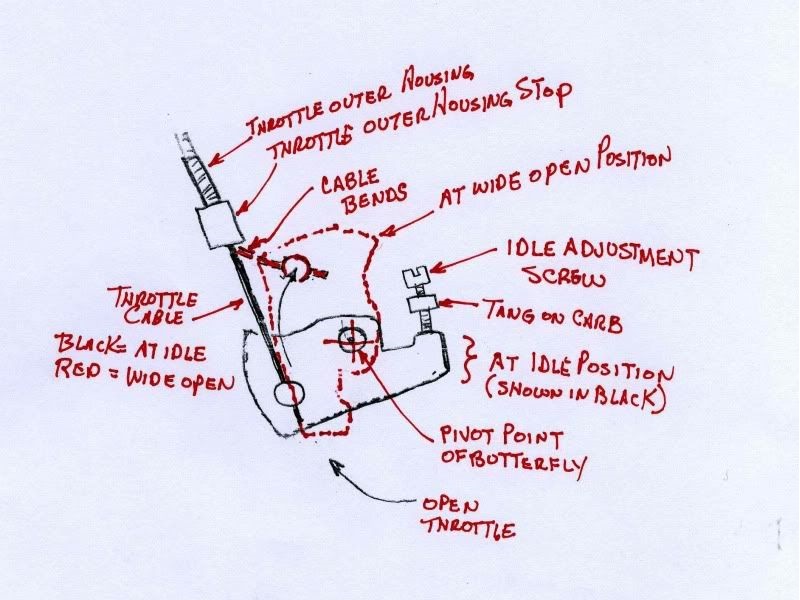 THROTTLE OUTER HOUSING
THROTTLE OUTER HOUSING STOP
CABLE
BENDS
AT WIDE OPEN POSITION
IDLE ADJUSTMENT
SCREW
THROTTLE
CABLE
TANG ON CARB
BLACK = AT IDLE
RED = WIDE OPEN
AT IDLE POSITION
(SHOWN IN BLACK)
PIVOT POINT
OF BUTTERFLY
OPEN
THROTTLE